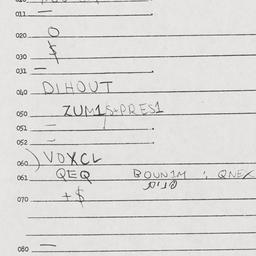 011 —
020 O
$
030
031 —
040 DIHOUT
ZUM1S+PRES1
050
051
052
060 VOXCL
061 QEQ BOUN1M ; QNEX
070 +$
080 —